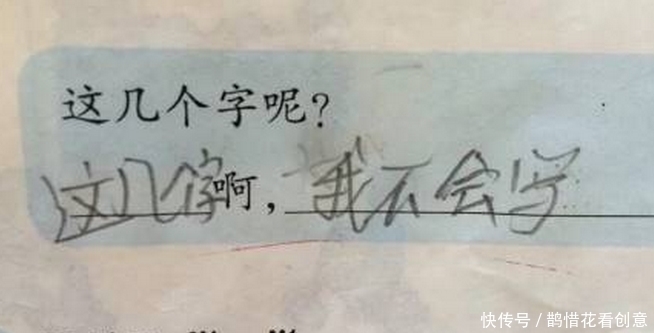 这几个字呢？
这几个字啊，我不会写
快传号／鹊惜花看创意